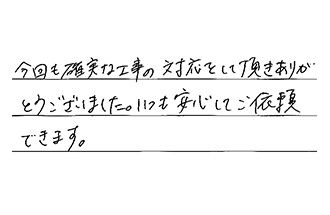 今回も確実な工事の対応をして頂きありが
とうございました。いつも安心してご依頼
できます。